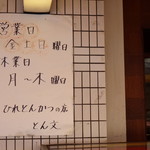 営業日
金土日曜日
休業日
月〜木曜日
ひれとんかつの店
とん文